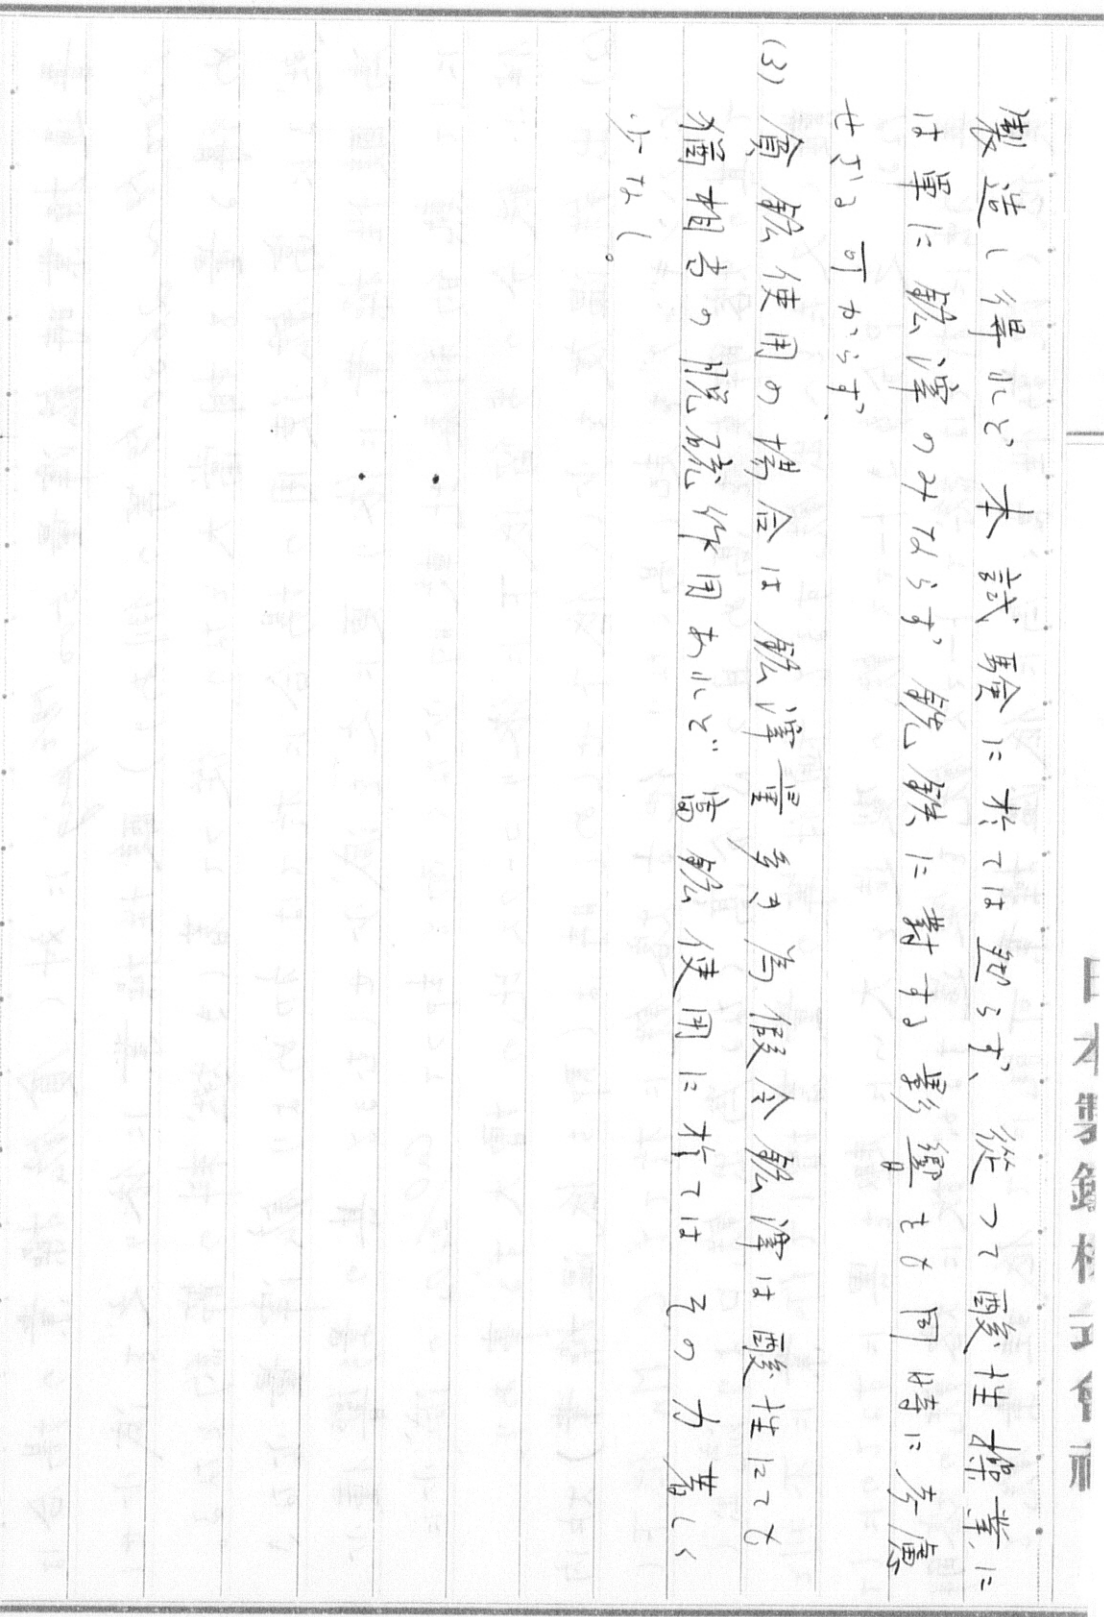 製造し得れど本試験に於ては然らず、従って酸性操業に
は單に鉱滓のみならず銑鉄に對する影響をも同時に考慮
せざる可からず、
(3) 貧鉱使用の場合は鉱滓量多き為假令鉱滓は酸性にても
猶相当の脱硫作用あれど富鉱使用に於ては その力著しく
少なし。
日本製鉄株式會社